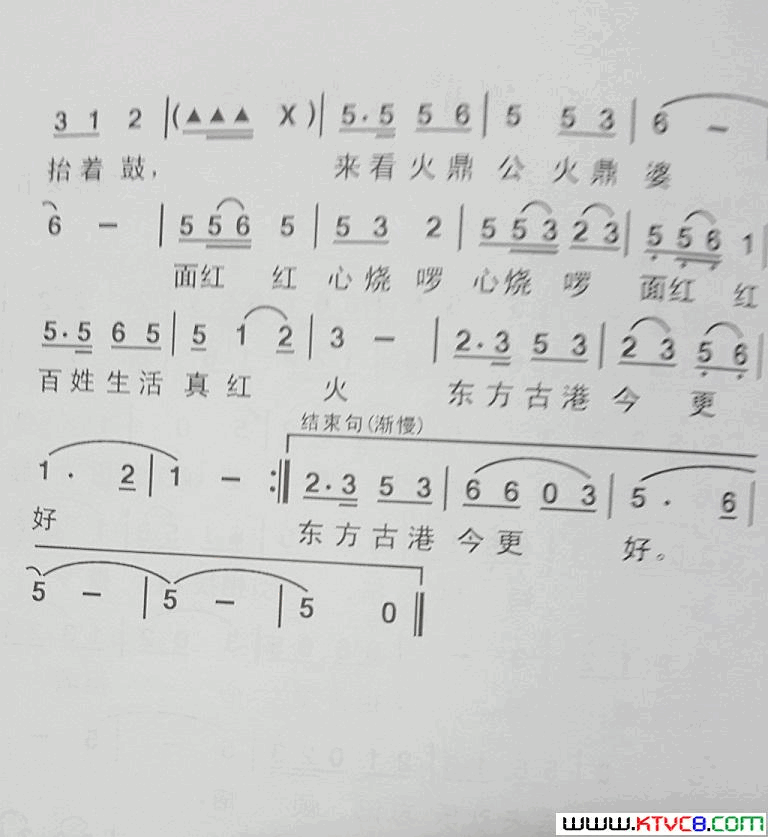 3 1 2 |(▲▲▲ X )| 5·5 5 6 | 5 5 3 | 6 –
抬着鼓， 来看火鼎公火鼎婆
6 – | 5 5 6 5 | 5 3 2 | 5 5 3 2 3 | 5 5 6 1 |
面红 红 心烧啰 心烧 啰 面红 红
5·5 6 5 | 5 1 2 | 3 – | 2·3 5 3 | 2 3 5 6 |
百姓生活真红 火 东方古港今 更
结束句(渐慢)
1 · 2 | 1 – :‖ 2·3 5 3 | 6 6 0 3 | 5 · 6 |
好 东方古港今更 好。
5 – | 5 – | 5 0 ‖
www.KTVC8.com